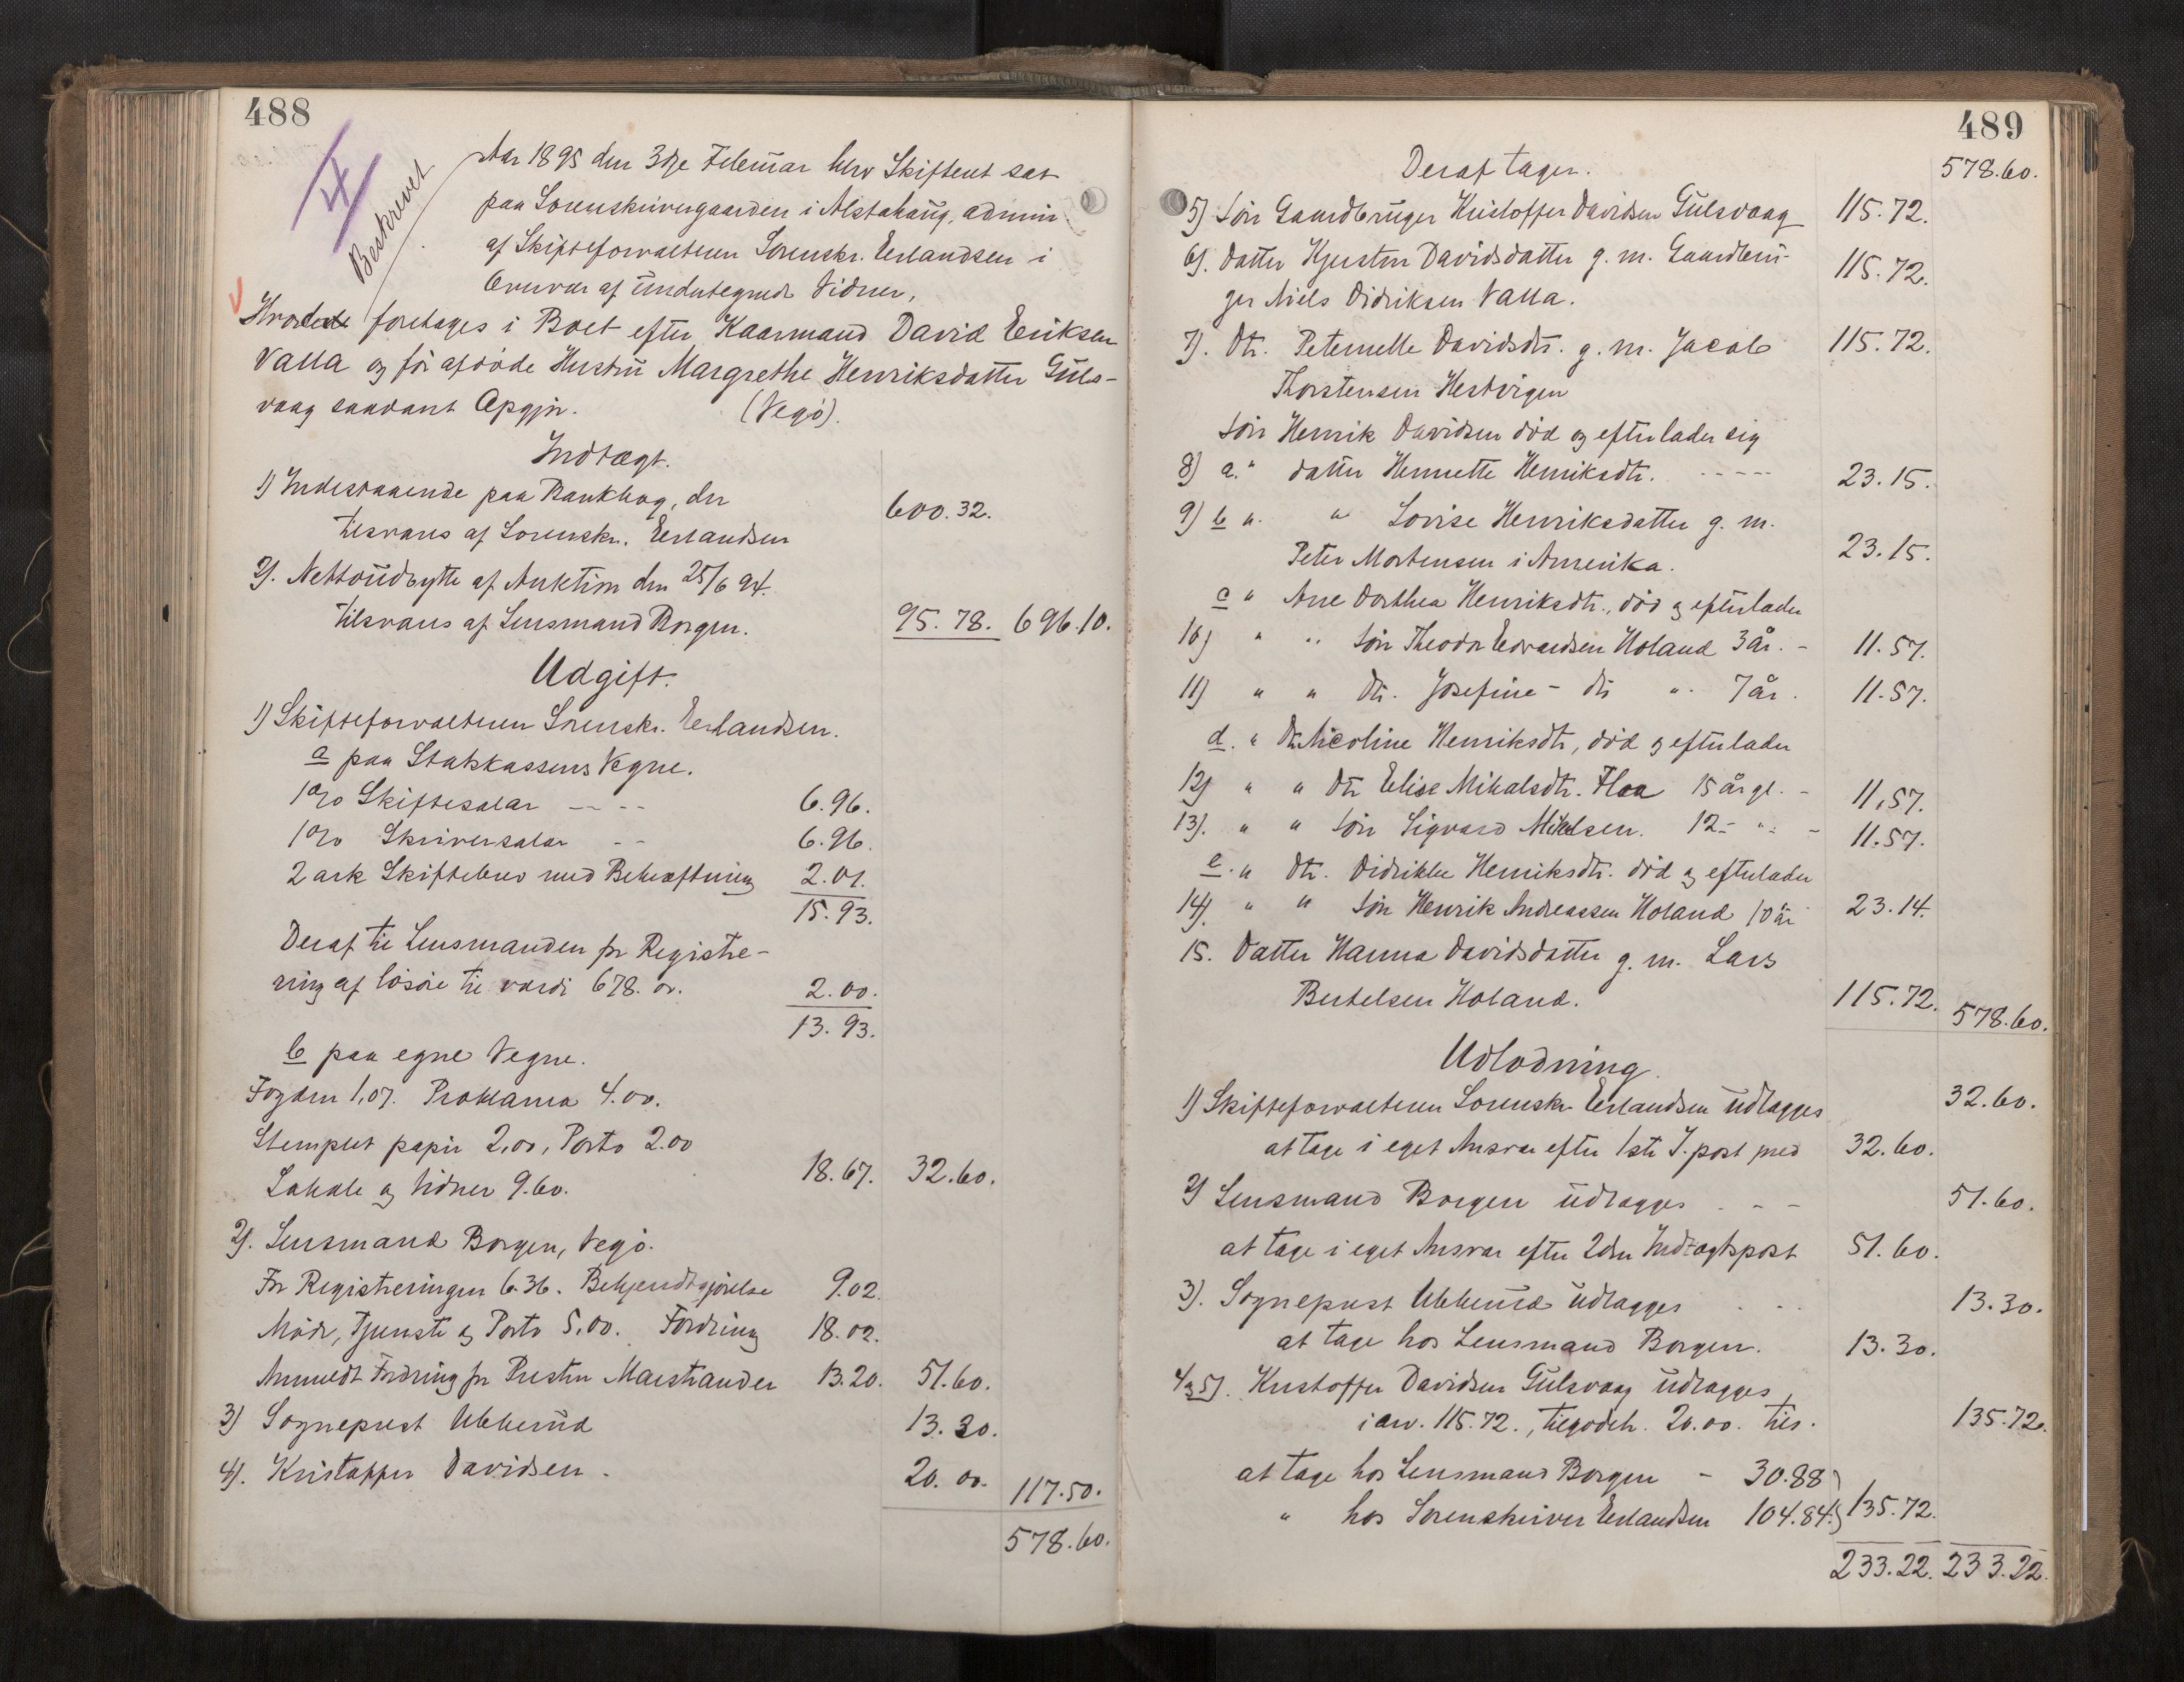 488
Beskrevet
Aar 1895 den 3dje Februar blev Skifteret sat
paa Sorenskrivergaarden i Alstahaug, admin
af Skifteforvalteren Sorenskr. Erlandsen i
Overvær af undertegnede Vidner,
Hvorledes foretages i Boet efter Kaarmand David Eriksen
Valla og før afdøde Hustru Margrethe Henriksdatter Guls-
vaag saadant Opgjør. (Vegø).
Indtægt.
1) Indestaaende paa Bankbog, der
tilsvares af Sorenskr. Erlandsen 600.32.
2). Nettoudbytte af Auktion den 25/6 94.
tilsvares af Lensmand Borgen. 95.78. 696.10.
Udgift.
1) Skifteforvalteren Sorenskr. Erlandsen.
a paa Statskassens Vegne.
1% Skiftesalær - - - 6.96.
1% Skriversalær - - 6.96.
2 ark Skiftebrev med Bekræftning 2.01.
15.93.
Deraf til Lensmanden for Registre-
ring af løsøre til værdi 678. 00. 2.00.
13.93.
b paa egne Vegne.
Fogden 1,07. Proklama 4.00.
Stemplet papir 2,00, Porto 2.00
Lokale og Vidner 9.60. 18.67. 32.60.
2). Lensmand Borgen, Vegø.
For Registreringen 6.36. Bekjendtgjørelse 9.02.
Møde, Tjeneste og Porto 5,00. Fordring 18.02.
Anmeldt Fordring for Presten Marstrander 13.20. 51.60.
3) Sogneprest Ubberud 13.30.
4). Kristoffer Davidsen. 20.00. 117.50.
578.60.
489
Deraf tager. 578.60.
5) Søn Gaardbruger Kristoffer Davidsen Gulsvaag 115.72.
6). Datter Kjersten Davidsdatter g. m. Gaardbru-
ger Niels Didriksen Valla. 115.72.
7). Dtr. Peternelle Davidsdtr. g. m. Jacob 115.72.
Thorstensen Hestvigen
Søn Henrik Davidsen død og efterlader sig
8) a. " datter Hennette Henriksdtr. - - - - 23.15.
9) b ". " Lovise Henriksdatter g. m.
Peter Mortensen i Amerika. 23.15.
c " Ane Dorthea Henriksdtr., død og efterlader
10) " " Søn Theodor Edvardsen Holand 3 år. - 11.57.
11) " " Dtr. Josefine - dtr " 7 år. 11.57.
d. " Dtr. Nicoline Henriksdtr, død og efterlader
12) " " Dtr Elise Mikalsdtr. Flaa 15 år gl. - 11,57.
13). " " Søn Sigvard Mikalsen. 12 - " - 11.57.
e. " Dtr. Didrikke Henriksdtr. død og efterlader
14). " " Søn Henrik Andreassen Holand 10 år 23.14.
15. Datter Hanna Davidsdatter g. m. Lars
Bertelsen Holand. 115.72. 578.60.
Udlodning.
1) Skifteforvalteren Sorenskr. Erlandsen udlægges 32.60.
at tage i eget Ansvar efter 1ste I. post med 32.60.
2) Lensmand Borgen udlægges - - - 51.60.
at tage i eget Ansvar efter 2den Indtægtspost 51.60.
3). Sogneprest Ubberud udlægges - - - 13.30.
at tage hos Lensmand Borgen. 13.30.
4 og 5). Kristoffer Davidsen Gulsvaag udlægges
i arv. 115.72., tilgodeh. 20.00. tils. 135.72.
at tage hos Lensmand Borgen - 30.88
" hos Sorenskriver Erlandsen 104.84. 135.72.
233.22. 233.22.